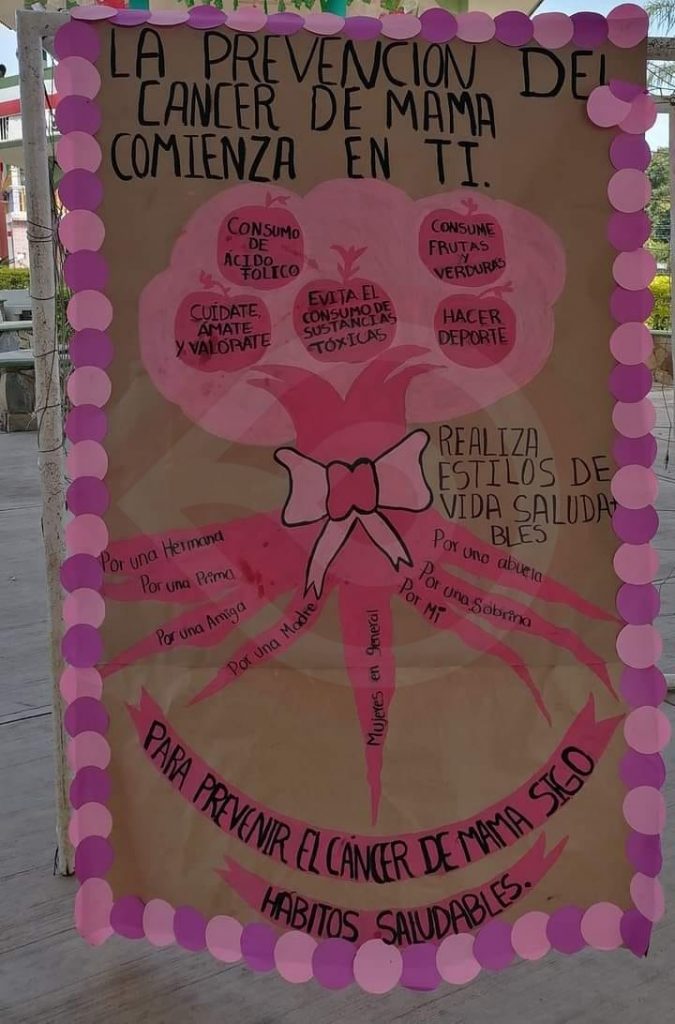 LA PREVENCION DEL
CANCER DE MAMA
COMIENZA EN TI.
CONSUMO
DE
ÁCIDO
FOLICO
CONSUME
FRUTAS
Y
VERDURAS
CUÍDATE,
ÁMATE
Y VALÓRATE
EVITA EL
CONSUMO DE
SUSTANCIAS
TÓXICAS
HACER
DEPORTE
REALIZA
ESTILOS DE
VIDA SALUDA-
BLES
Por una Hermana
Por una Prima
Por una Amiga
Por una Madre
Mujeres en general
Por Mí
Por una Sobrina
Por una abuela
PARA PREVENIR EL CÁNCER DE MAMA SIGO
HÁBITOS SALUDABLES.